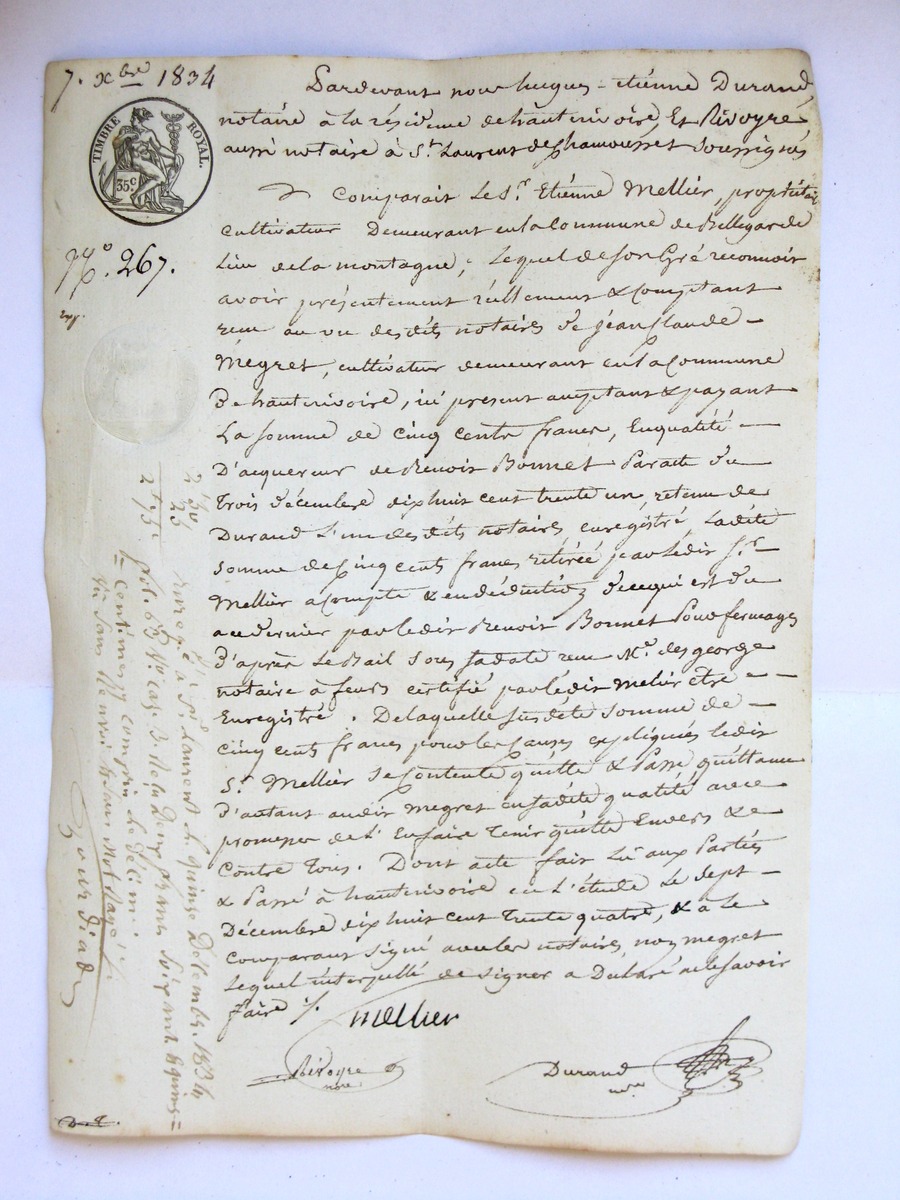 7. xbre 1834
TIMBRE ROYAL.
35c
No. 267.
Pardevant nous hugues-etiénne Durand,
notaire à la résidence de hauterivoire, Et Rivoyre
aussi notaire à St. Laurent de Chamousset Soussignés
Comparait Le Sr. Etiénne Mellier, propriétaire
cultivateur Demeurant en la Commune de Bellegarde
Lieu de la montagne; Lequel de Son Gré reconnoit
avoir présentement réellement & Comptant
reçu au vu desdits notaires de jean Claude
Mégret, cultivateur demeurant en la Commune
de hauterivoire, ici present acceptant & payant
La somme de cinq cents francs, En qualité
D'acquereur de Benoit Bonnet Par acte du
trois décembre dixhuit cent trente un, retenu de
Durand L'un desdits notaires enregistré, Ladite
somme de Cinq cents francs retirée par Ledit Sr.
Mellier à Compte & en déduction de ce qui est du
a ce dernier par ledit Benoit Bonnet Pour fermages
d'après Le Bail Sous sa date reçu Me. desgeorge
notaire à feurs certifié par ledit Melier être
Enregistré. De laquelle Susdite Somme de
cinq cents francs pour les Causes expliquées ledit
Sr. Mellier Se Contente quitte & Passe quittance
d'autant audit megret en sadite qualité avec
promesse de L'En faire Tenir quitte Envers & 
Contre Tous. Dont acte fait Lu aux Parties
& Passé à hauterivoire en L'étude Le Sept
Décembre dixhuit cent trente quatre, & a le
Comparant Signé avec les notaires non megret
Lequel interpellé de Signer a Déclaré ne le Savoir
faire ./.
Mellier
Rivoyre
nore
Durand
nre
2f 50
25
2f 75c
Enregé à St Laurent le quinze Décembre 1834
fol. 63 Vo Case 3. Reçu Deux francs Soixante quinze
centimes compris le décime